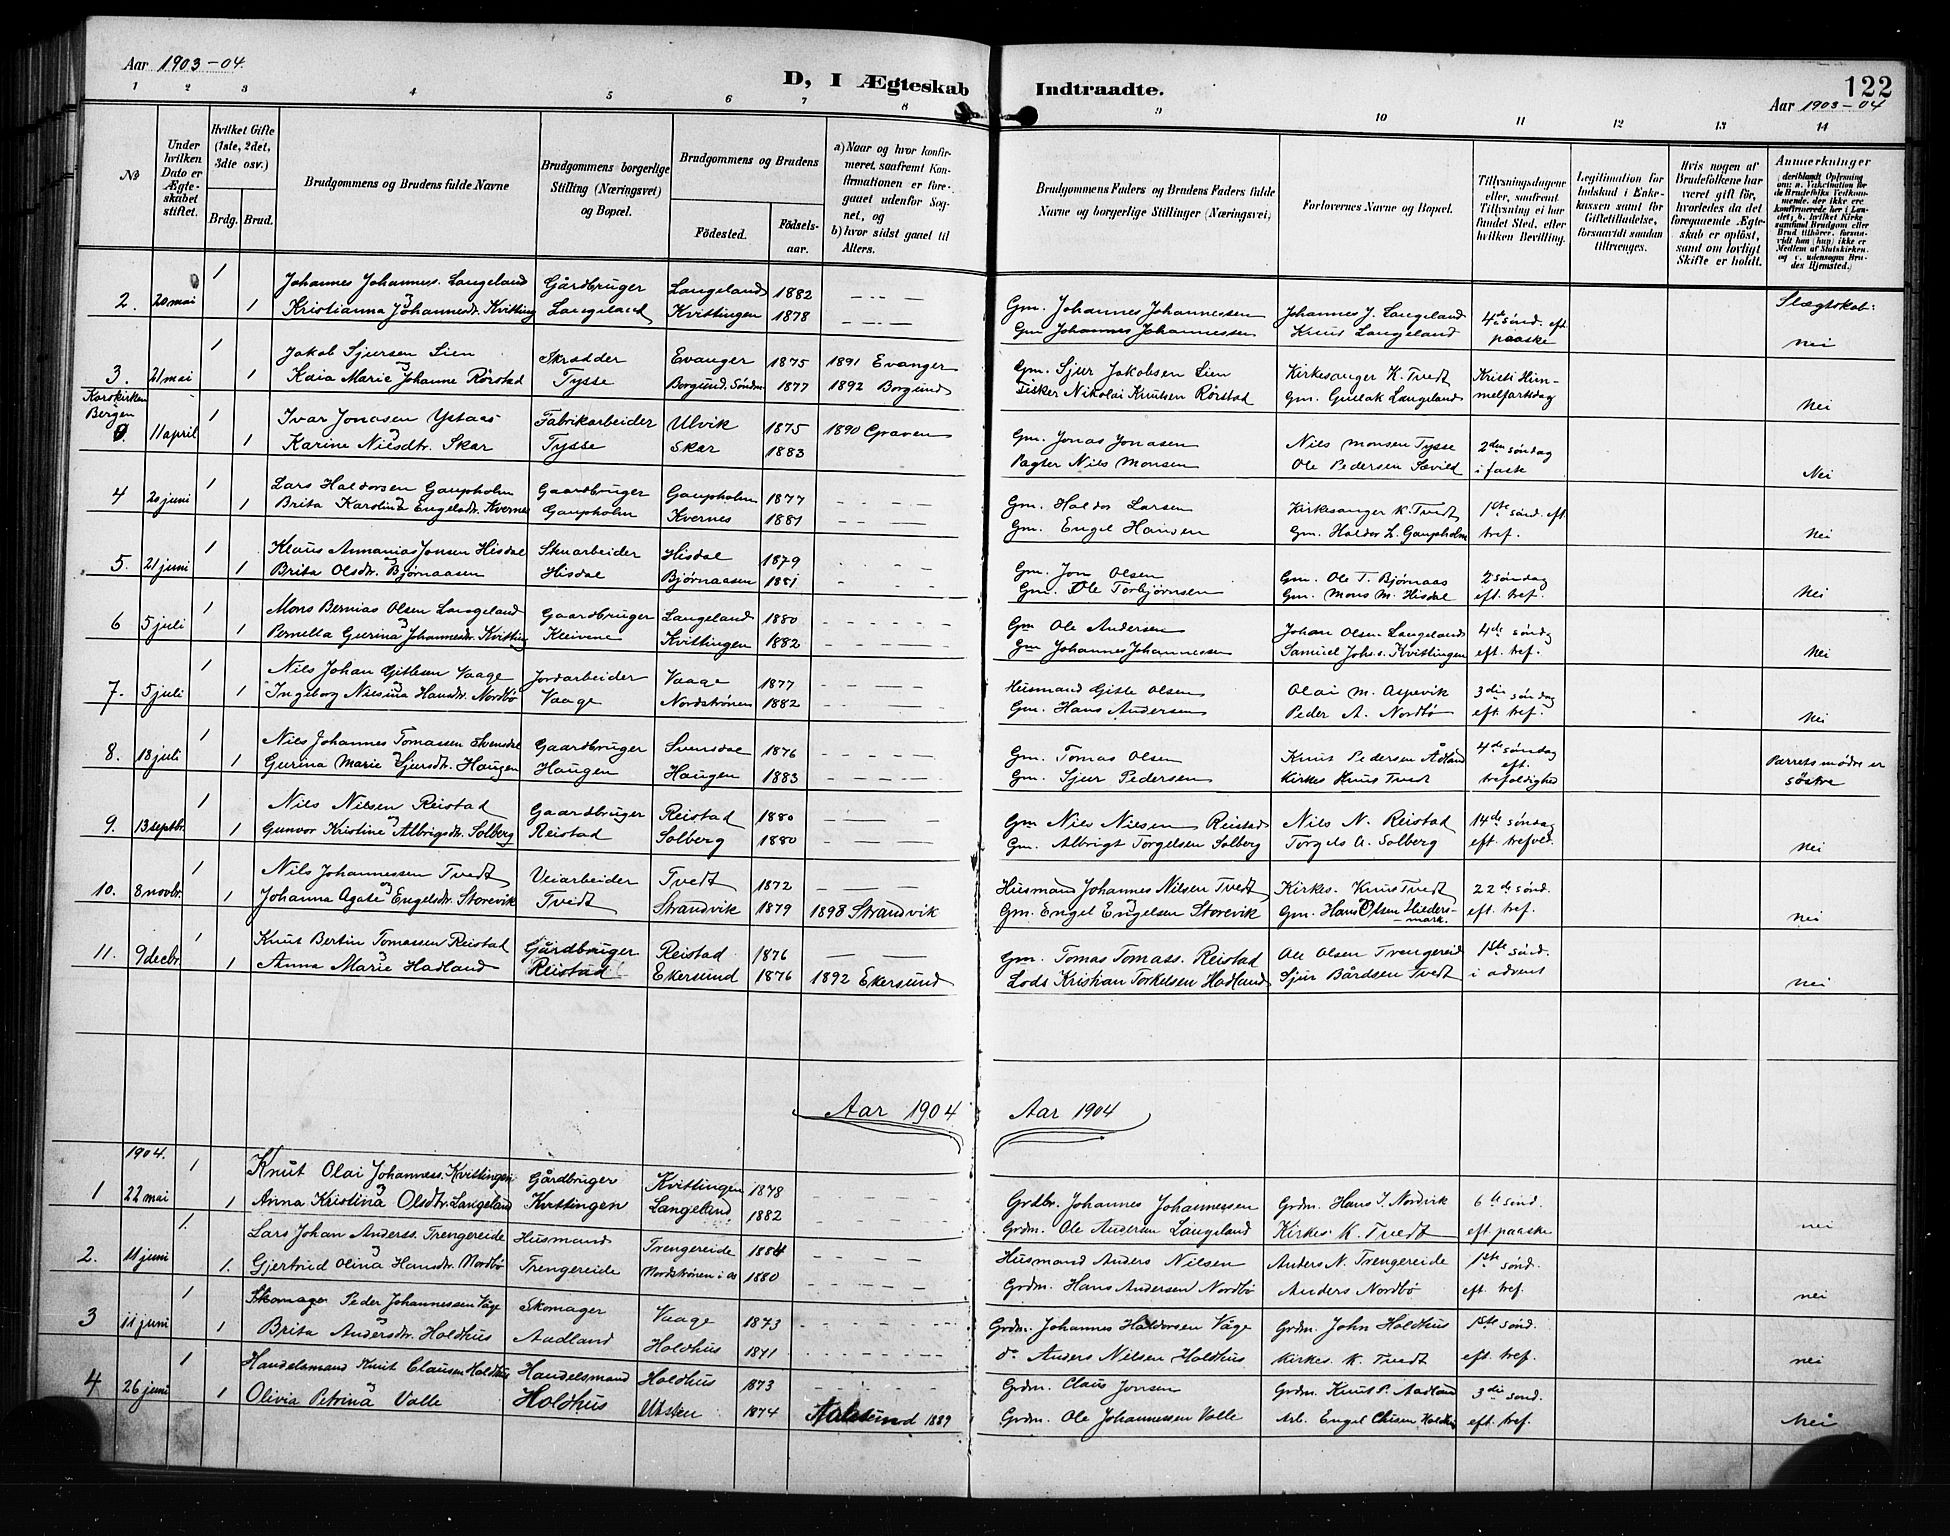 Aar 1903-04.
D, I Ægteskab Indtraadte.
122
Aar 1903-04
1 2 3 4 5 6 7 8 9 10 11 12 13 14
No
Under hvilken Dato er Ægteskabet stiftet.
Hvilket Gifte (1ste, 2det, 3die osv.)
Brdg. Brud.
Brudgommens og Brudens fulde Navne
Brudgommens borgerlige Stilling (Næringsvei) og Bopæl.
Brudgommens og Brudens
Fødested. Fødselsaar.
a) Naar og hvor konfirmeret, saafremt Konfirmationen er foregaaet udenfor Sognet, og
b) hvor sidst gaaet til Alters.
Brudgommens Faders og Brudens Faders fulde Navne og borgerlige Stillinger (Næringsvei)
Forlovernes Navne og Bopæl.
Tillysningsdagene eller, saafremt Tillysning ei har fundet Sted, efter hvilken Bevilling.
Legitimation for Indskud i Enkekassen samt for Giftetilladelse, forsaavidt saadan tiltrænges.
Hvis nogen af Brudefolkene har været gift før, hvorledes da det foregaaende Ægteskab er opløst, samt om lovligt Skifte er holdt.
Anmerkninger
2. 20 mai 1 Johannes Johanness. Langeland Gårdbruger Langeland 1882 Gm. Johannes Johannessen Johannes J. Langeland 4de sønd. eft Slægtskab:
1 Kristianna Johannesdtr. Kvitting Langeland Kvittingen 1878 Gm Johannes Johannessen Knut Langeland paaske nei
3. 21 mai 1 Jakob Sjursen Lien Skrædder Evanger 1875 1891 Evanger Gm. Sjur Jakobsen Lien Kirkesanger K. Tvedt Kristi Him-
Korskirken Bergen 1 Kaia Marie Johanne Rørstad Tysse Borgund. Søndm. 1877 1892 Borgund Fisker Nikolai Knutsen Rørstad Gm. Guslak Langeland melfartsdag Nei
11 april 1 Ivar Jonasen Ystaas Fabrikarbeider Ulvik 1875 1890 Graven Gm. Jonas Jonasen Nils Monsen Tysse 2den søndag
1 Karine Nilsdtr. Skar Tysse Skar 1883 Pagter Nils Monsen Ole Pedersen Sævild i faste Nei
4 20 juni 1 Lars Haldorsen Gaupholm Gaardbruger Gaupholm 1877 Gm. Haldor Larsen Kirkesanger K. Tvedt 1ste sønd. eft
1 Brita Karolina Engelsdtr. Kvernes Gaupholm Kvernes 1881 Gm. Engel Hansen Gm. Haldor L. Gaupholm tref. nei
5. 21 juni 1 Klaus Annanias Jonsen Hisdal Skuarbeider Hisdal 1879 Gm. Jon Olsen Gm. Ole T. Bjørnaas 2 søndag
1 Brita Olsdtr. Bjørnaasen Hisdal Bjørnaasen 1881 Gm. Ole Torbjørnsen Gm. Mons M. Hisdal eft. tref. Nei
6 5 juli 1 Mons Bernias Olsen Langeland Gaardbruger Langeland 1880 Gm Ole Andersen Johan Olsen Langeland 4de søndag
1 Pernella Gurina Johannesdtr. Kvitting Kleivene Kvittingen 1882 Gm Johannes Johannessen Samuel Johs.s. Kvittingen eft. tref. Nei
7. 5 juli 1 Nils Johan Gitlesen Vaage Jordarbeider Vaage 1877 Husmand Gitle Olsen Olai M. Aspevik 3die søndag
1 Ingeborg Nilsina Hansdtr. Nordbø Vaage Nordstrønen 1882 Gm. Hans Andersen Peder A. Nordbø eft. tref. Nei
8. 18 juli 1 Nils Johannes Tomassen Svensdal Gaardbruger Svensdal 1876 Gm. Tomas Olsen Knut Pedersen Ådland 4de søndag eft. Parrets mødre er
1 Gurina Marie Sjursdtr. Haugen Haugen Haugen 1883 Gm. Sjur Pedersen Kirkes Knut Tvedt trefoldighed søstre
9. 13 septbr. 1 Nils Nilsen Reistad Gaardbruger Reistad 1880 Gm Nils Nilsen Reistad Nils N. Reistad 14de søndag
1 Gunvor Kristine Albrigsdtr. Solberg Reistad Solberg 1880 Gm. Albrigt Torgelsen Solberg Torgels A. Solberg eft. trefol. nei
10. 8 novbr. 1 Nils Johannessen Tvedt Veiarbeider Tvedt 1872 Husmand Johannes Nilsen Tvedt Kirkes. Knut Tvedt 22de sønd.
1 Johanna Agate Engelsdtr. Storevik Tvedt Strandvik 1879 1898 Strandvik Gm. Engel Engelsen Storevik Gm. Hans Olsen eft. tref. nei
11. 9 decbr. 1 Knut Bertin Tomassen Reistad Gårdbruger Reistad 1876 Gm. Tomas Tomass. Reistad Ole Olsen Trengereid 1ste sønd.
1 Anna Marie Hadland Reistad Ekersund 1876 1892 Ekersund Lods Kristian Torkelsen Hadland Sjur Bårdsen Tvedt i advent nei
Aar 1904 Aar 1904
1904.
1 22 mai 1 Knut Olai Johanness. Kvittingen Gårdbruger Kvittingen 1878 Grdbr. Johannes Johannessen Grdm. Hans J. Nordvik 6te sønd.
1 Anna Kristina Olsdtr. Langeland Kvittingen Langeland 1882 Grdm. Ole Andersen Langeland Kirkes. K. Tvedt eft paaske nei
2. 11 juni 1. Lars Johan Anderss. Trengereide Husmand Trengereide 1884 Husmand Anders Nilsen Anders N. Trengereide 1ste sønd.
1. Gjertrud Olina Hansdtr. Nordbø Trengereide Nordstrønen i os 1880 Grdm. Hans Andersen Nordbø Anders Nordbø eft. tref. nei
3 11 juni 1 Skomager Peder Johannessen Våge Skomager Vaage 1873 Grdm. Johannes Haldorsen Våge Grdm. John Holdhus 1ste sønd.
1 Brita Andersdtr. Holdhus Aadland Holdhus 1871 do Anders Nilsen Holdhus Kirkes. K. Tvedt eft. tref. nei
4 26 juni 1 Handelsmand Knut Clausen Holdhus Handelsmand Holdhus 1873 Grdm. Claus Jonsen Grdm. Knut P. Aadland 3die sønd.
1 Olivia Petrina Valle Holdhus 1874 Aalesund 1889 Grdm. Ole Johannessen Valle Arb. Engel eft. tref. Nei